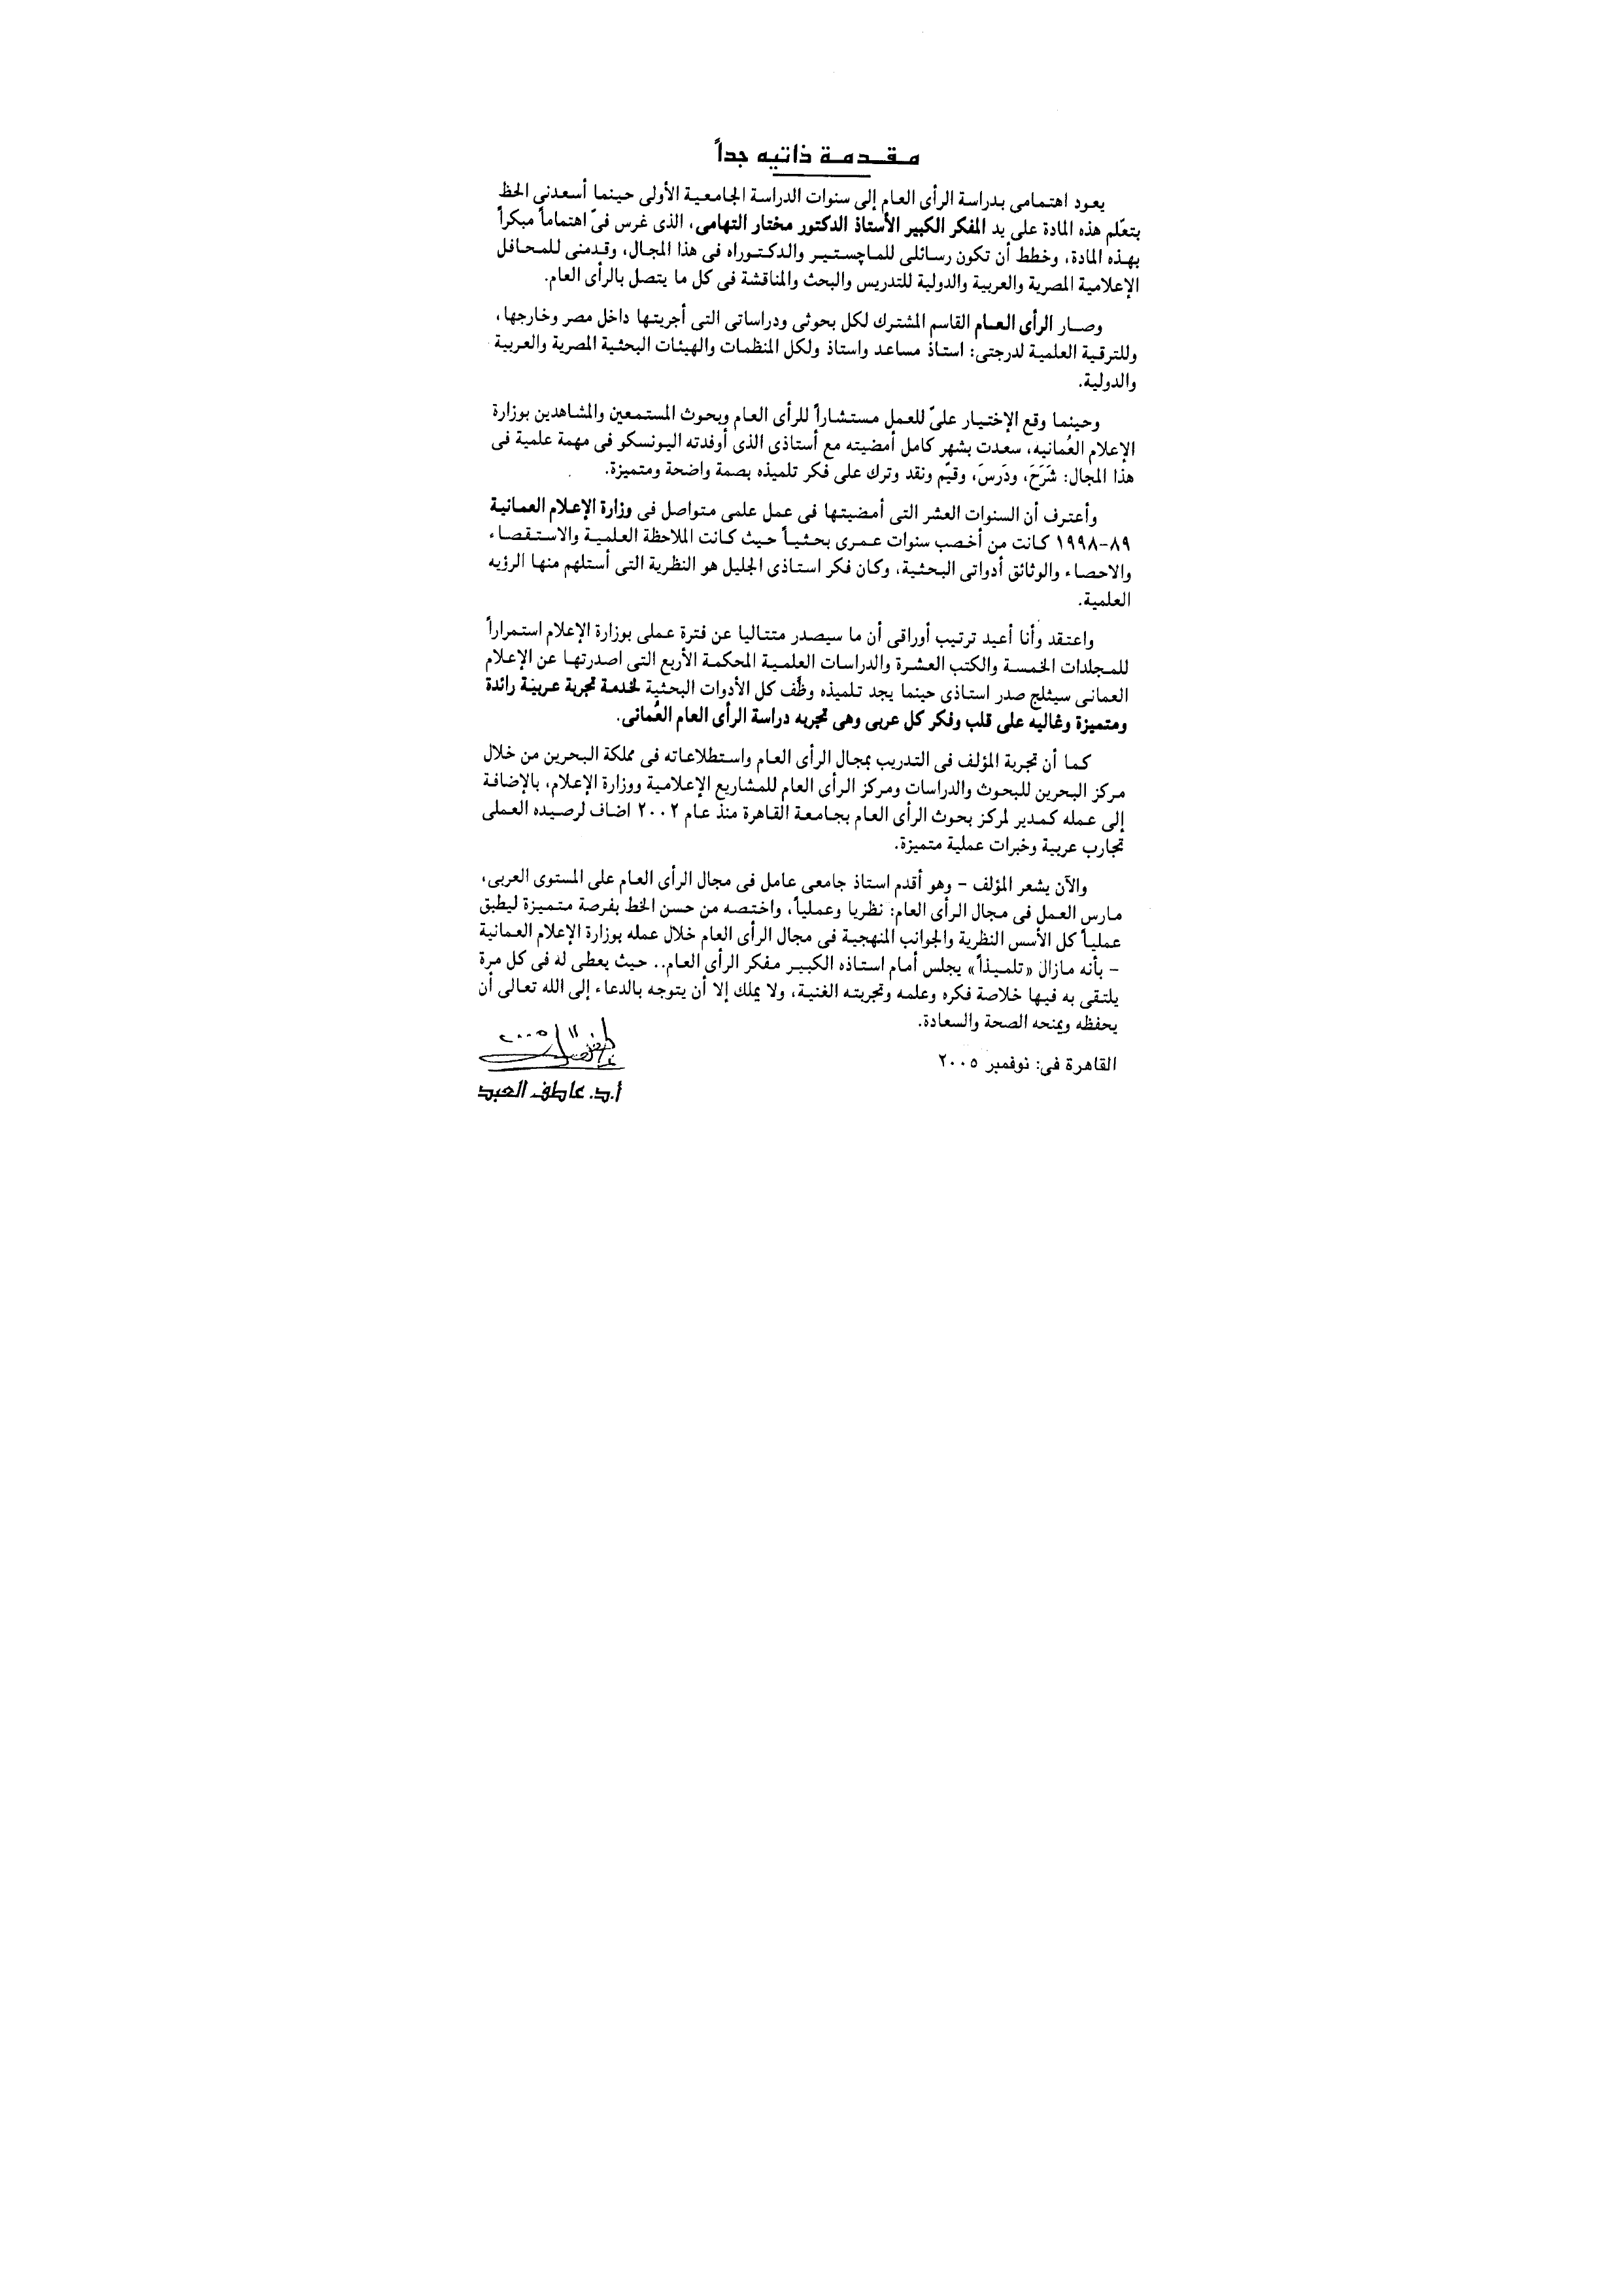 مقدمة ذاتيه جداً
يعود اهتمامى بدراسة الرأى العام إلى سنوات الدراسة الجامعية الأولى حينما أسعدنى الحظ
بتعّلم هذه المادة على يد المفكر الكبير الأستاذ الدكتور مختار التهامى، الذى غرس فىّ اهتماماً مبكراً
بهذه المادة، وخطط أن تكون رسائلى للماچستير والدكتوراه فى هذا المجال، وقدمنى للمحافل
الإعلامية المصرية والعربية والدولية للتدريس والبحث والمناقشة فى كل ما يتصل بالرأى العام.
وصار الرأى العام القاسم المشترك لكل بحوثى ودراساتى التى أجريتها داخل مصر وخارجها،
وللترقية العلمية لدرجتى: استاذ مساعد واستاذ ولكل المنظمات والهيئات البحثية المصرية والعربية
والدولية.
وحينما وقع الإختيار علىّ للعمل مستشاراً للرأى العام وبحوث المستمعين والمشاهدين بوزارة
الإعلام العُمانيه، سعدت بشهر كامل أمضيته مع أستاذى الذى أوفدته اليونسكو فى مهمة علمية فى
هذا المجال: شَرَحَ، ودَرسَ، وقيّم ونقد وترك على فكر تلميذه بصمة واضحة ومتميزة.
وأعترف أن السنوات العشر التى أمضيتها فى عمل علمى متواصل فى وزارة الإعلام العمانية
٨٩-١٩٩٨ كانت من أخصب سنوات عمرى بحثياً حيث كانت الملاحظة العلمية والاستقصاء
والاحصاء والوثائق أدواتى البحثية، وكان فكر استاذى الجليل هو النظرية التى أستلهم منها الرؤيه
العلمية.
واعتقد وأنا أعيد ترتيب أوراقى أن ما سيصدر متتاليا عن فترة عملى بوزارة الإعلام استمراراً
للمجلدات الخمسة والكتب العشرة والدراسات العلمية المحكمة الأربع التى اصدرتها عن الإعلام
العمانى سيثلج صدر استاذى حينما يجد تلميذه وظّف كل الأدوات البحثية لخدمة تجربة عربية رائدة
ومتميزة وغاليه على قلب وفكر كل عربى وهى تجربه دراسة الرأى العام العُمانى.
كما أن تجربة المؤلف فى التدريب بمجال الرأى العام واستطلاعاته فى مملكة البحرين من خلال
مركز البحرين للبحوث والدراسات ومركز الرأى العام للمشاريع الإعلامية ووزارة الإعلام، بالإضافة
إلى عمله كمدير لمركز بحوث الرأى العام بجامعة القاهرة منذ عام ٢٠٠٢ اضاف لرصيده العملى
تجارب عربية وخبرات عملية متميزة.
والآن يشعر المؤلف - وهو أقدم استاذ جامعى عامل فى مجال الرأى العام على المستوى العربى،
مارس العمل فى مجال الرأى العام: نظريا وعملياً، واختصه من حسن الخط بفرصة متميزة ليطبق
عملياً كل الأسس النظرية والجوانب المنهجية فى مجال الرأى العام خلال عمله بوزارة الإعلام العمانية
- بأنه مازال «تلميذاً» يجلس أمام استاذه الكبير مفكر الرأى العام.. حيث يعطى له فى كل مرة
يلتقى به فيها خلاصة فكره وعلمه وتجربته الغنية، ولا يملك إلا أن يتوجه بالدعاء إلى الله تعالى أن
يحفظه ويمنحه الصحة والسعادة.
القاهرة فى: نوفمبر ٢٠٠٥
أ.د. عاطف العبد